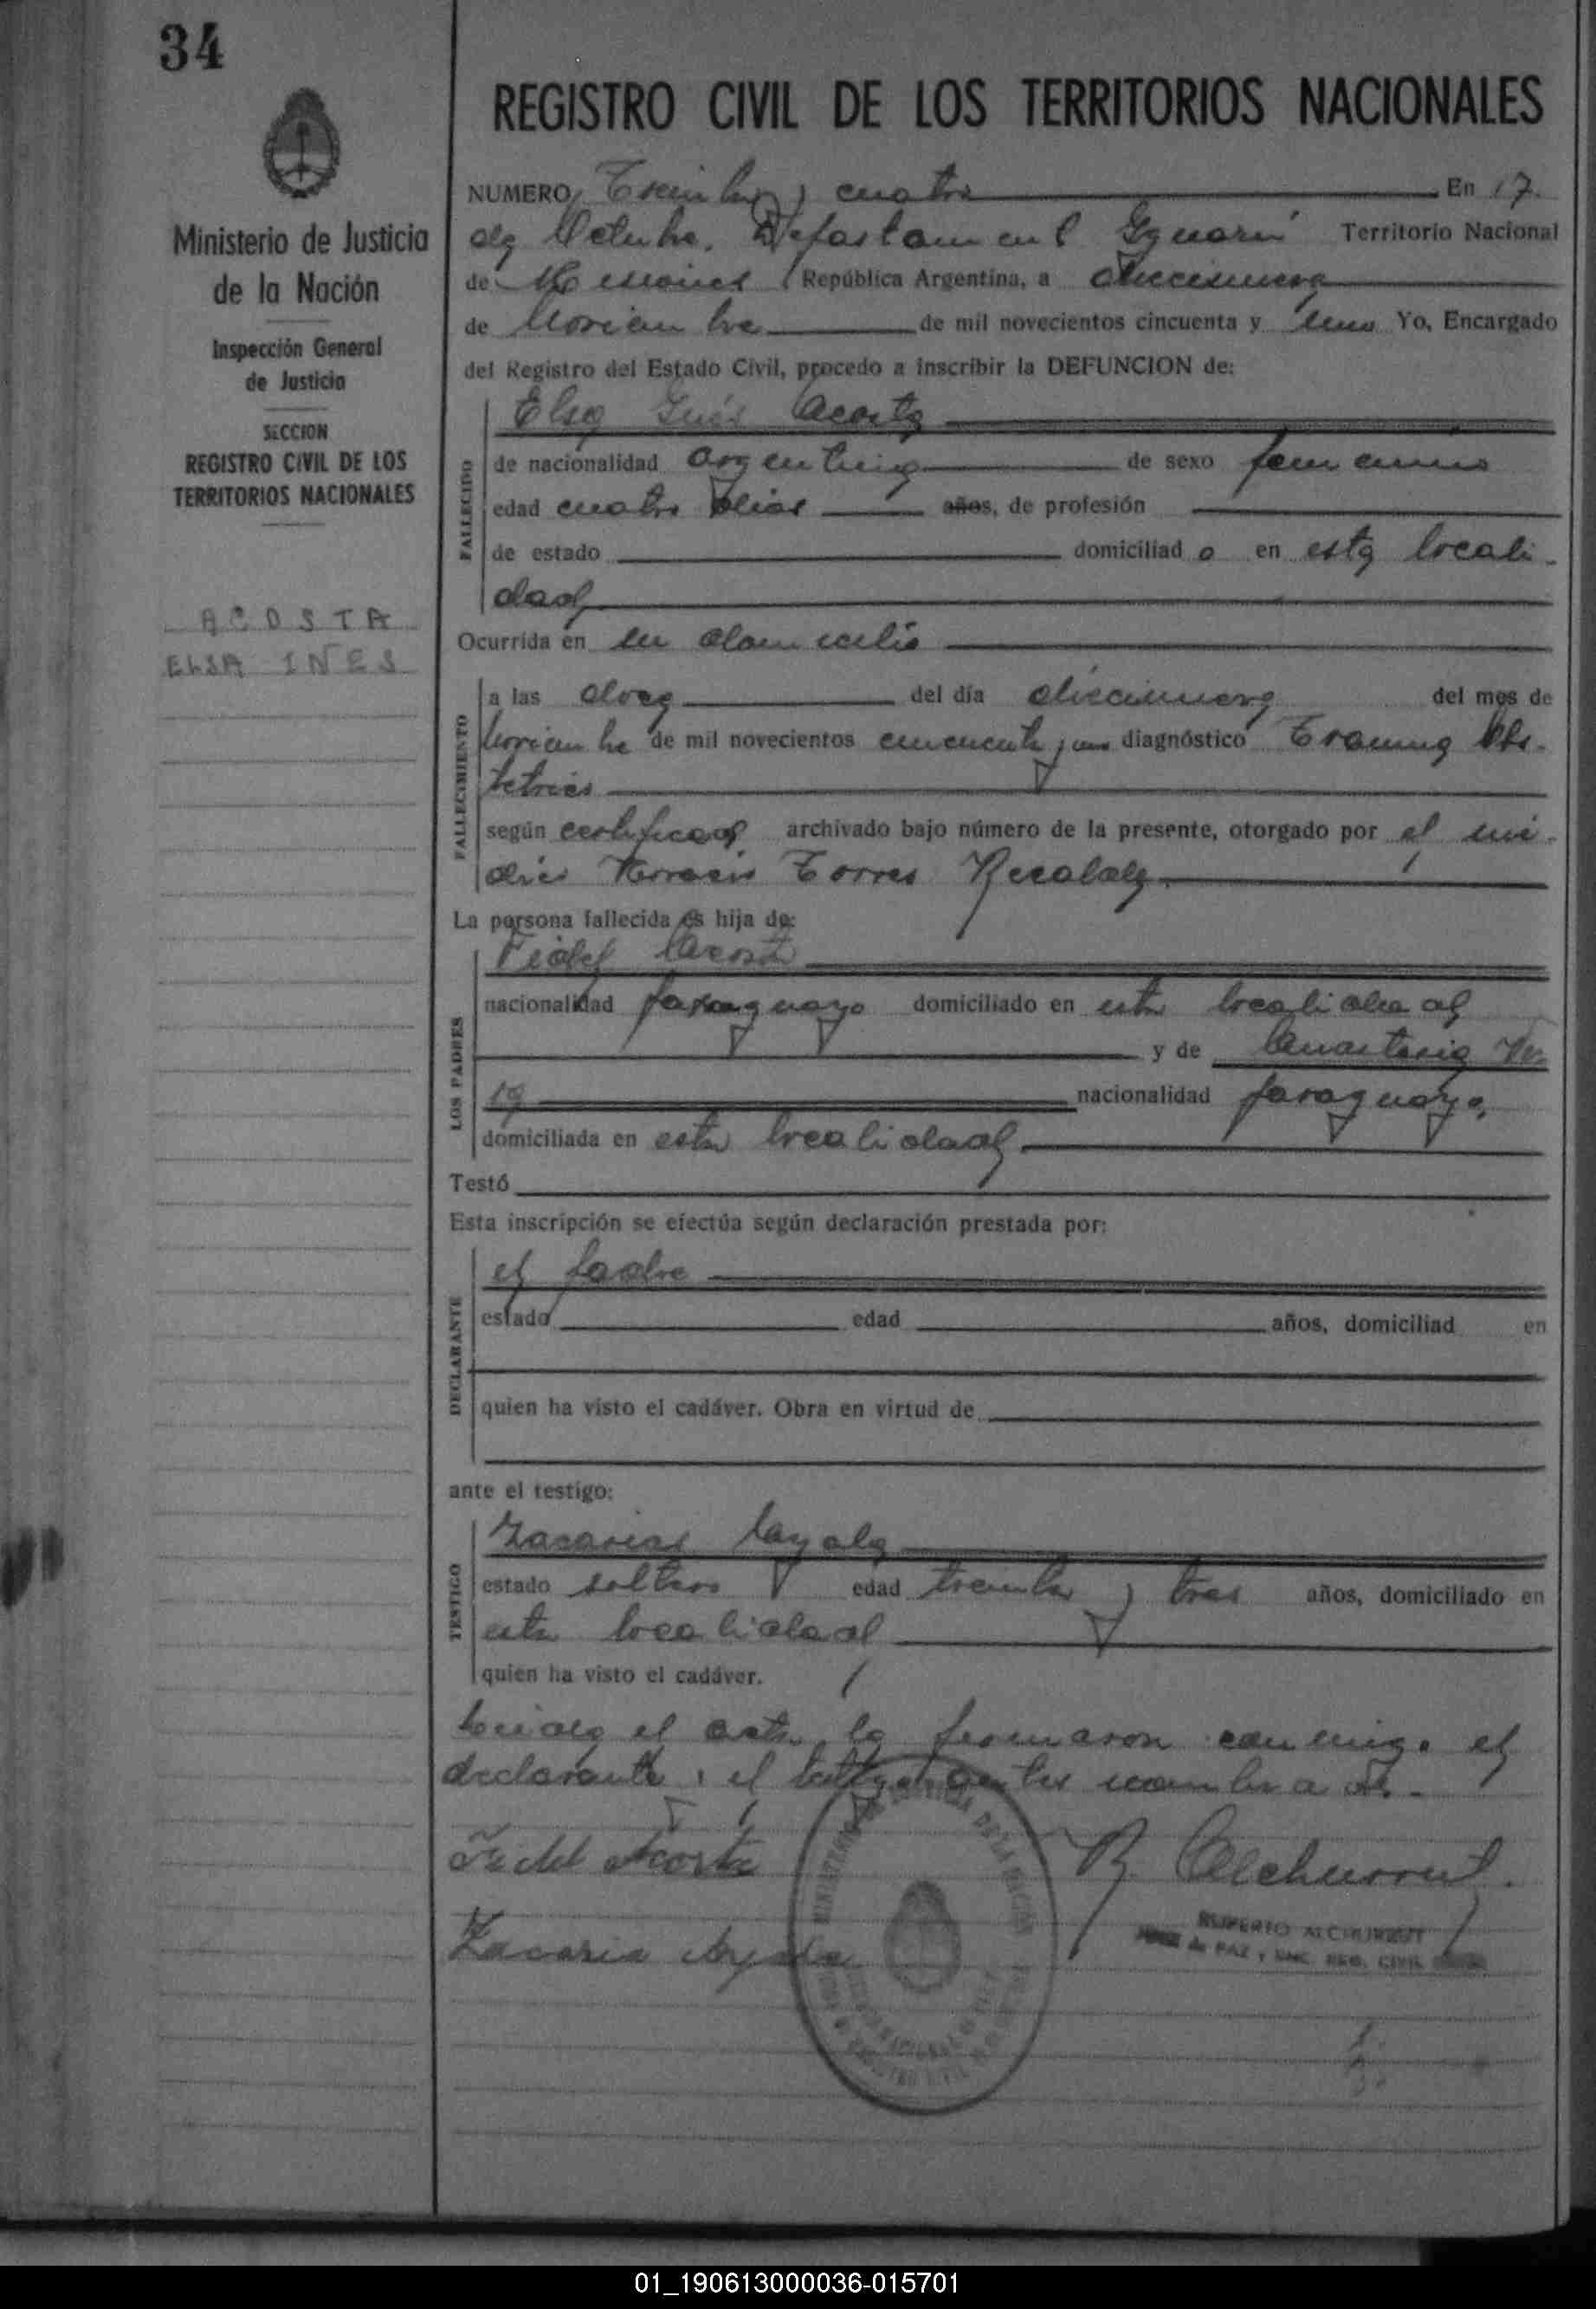 34
REGISTRO CIVIL DE LOS TERRITORIOS NACIONALES
Ministerio de Justicia
de la Nación
Inspección General
de Justicia
SECCION
REGISTRO CIVIL DE LOS
TERRITORIOS NACIONALES
ACOSTA
ELSA INES
NUMERO Treinta y cuatro En 17.
de Octubre, Departamento Iguazú Territorio Nacional
de Misiones República Argentina, a diecinueve
de Noviembre de mil novecientos cincuenta y uno Yo, Encargado
del Registro del Estado Civil, procedo a inscribir la DEFUNCION de:
Elsa Inés Acosta
FALLECIDO
de nacionalidad argentina de sexo femenino
edad cuatro días años, de profesión
de estado domiciliad o en esta locali-
dad
Ocurrida en su domicilio
FALLECIMIENTO
a las doce del día diecinueve del mes de
Noviembre de mil novecientos cincuenta y uno diagnóstico Trauma Obs-
tetrico
según certificado archivado bajo número de la presente, otorgado por el mé-
dico Horacio Torres Recalde
La persona fallecida es hija de:
LOS PADRES
Fidel Acosta
nacionalidad paraguayo domiciliado en esta localidad
y de Anastasia
nacionalidad paraguaya,
domiciliada en esta localidad
Testó
Esta inscripción se efectúa según declaración prestada por:
DECLARANTE
el padre
estado edad años, domiciliad en
quien ha visto el cadáver. Obra en virtud de
ante el testigo:
TESTIGO
Zacarias Ayala
estado soltero edad treinta y tres años, domiciliado en
esta localidad
quien ha visto el cadáver.
Leida el acta la firmaron conmigo el
declarante y el testigo antes nombrado.
Fidel Acosta
R. Alchurrut.
Zacaria Ayala
RUPERTO ALCHURRUT
JUEZ de PAZ y ENC. REG. CIVIL
01_190613000036-015701